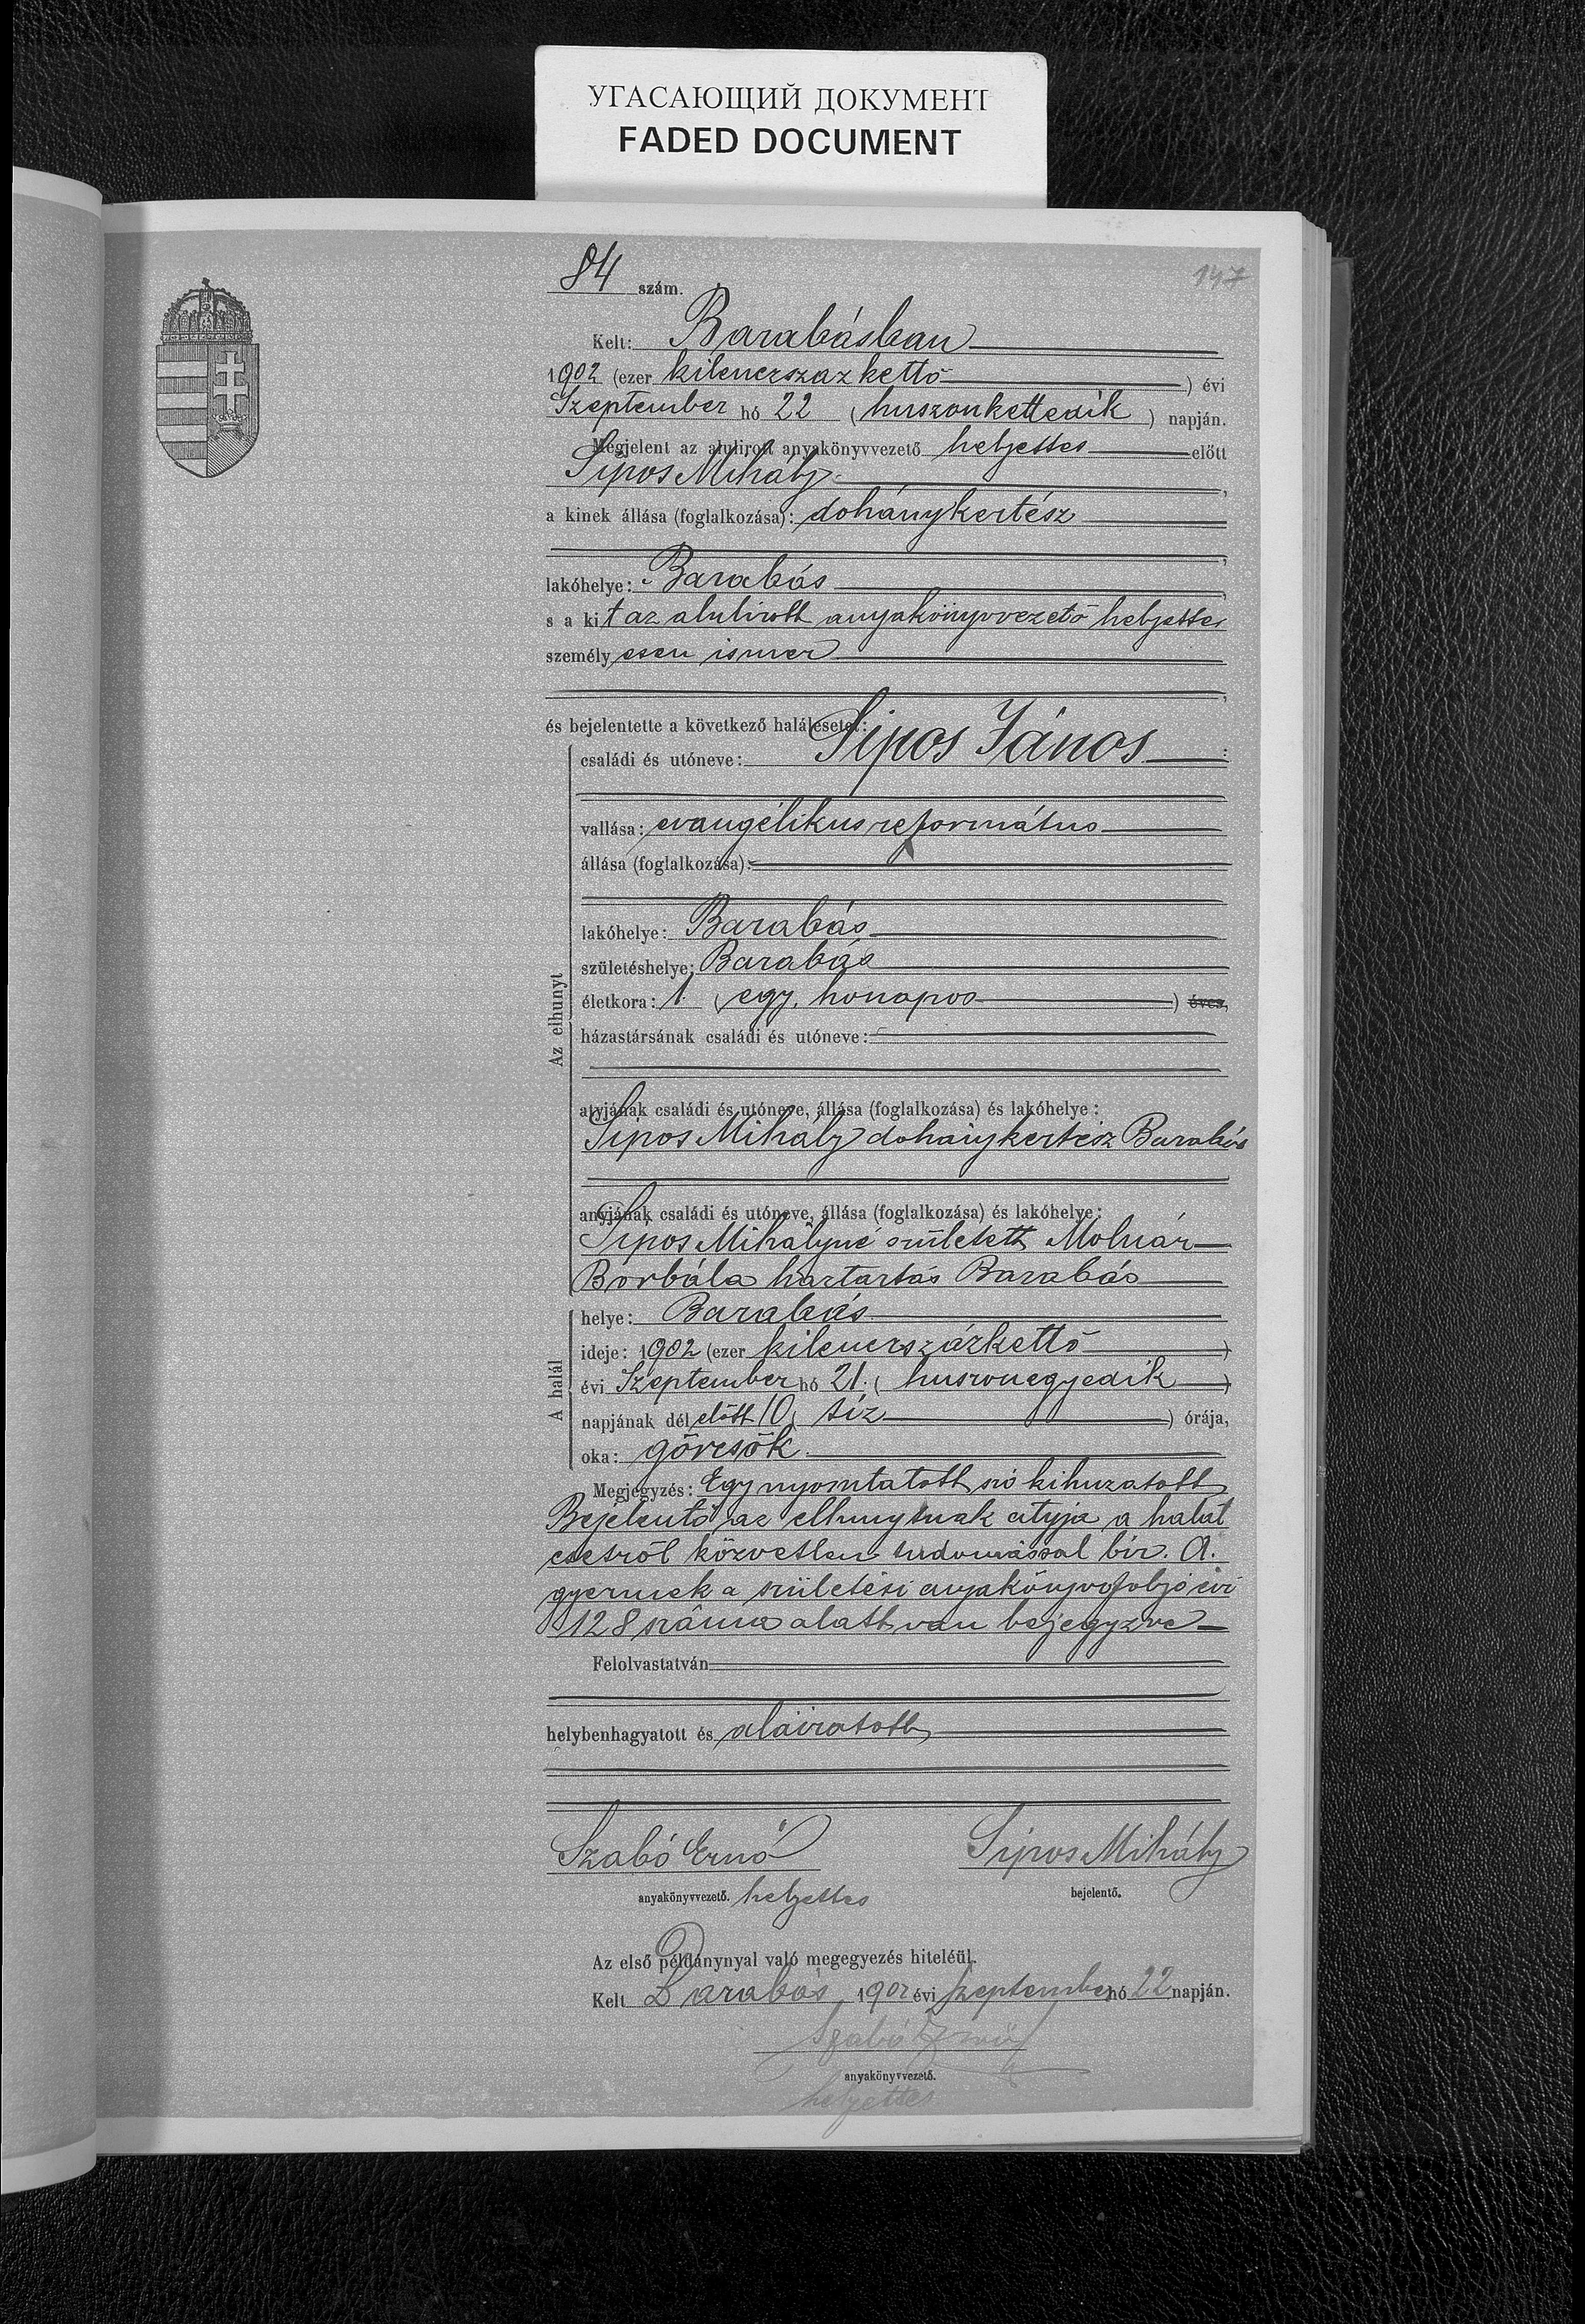 УГАСАЮЩИЙ ДОКУМЕНТ
FADED DOCUMENT
147
84 szám.
Kelt: Barabásban
1902 (ezer kilenczszaz kettő ) évi
Szeptember hó 22 (huszonkettedik ) napján.
Megjelent az alulirott anyakönyvvezető helyettes előtt
Sipos Mihály ,
a kinek állása (foglalkozása): dohánykertész
,
lakóhelye: Barabás ,
s a kit az alulirott anyakönyvvezető helyettes
személyesen ismer
,
és bejelentette a következő halálesetet:
Az elhunyt
családi és utóneve: Sipos János :
vallása: evangélikus református
állása (foglalkozása):
lakóhelye: Barabás
születéshelye: Barabás
életkora: 1 (egy. honapos ) éves,
házastársának családi és utóneve:
atyjának családi és utóneve, állása (foglalkozása) és lakóhelye:
Sipos Mihály dohánykertész Barabás
anyjának családi és utóneve, állása (foglalkozása) és lakóhelye:
Sipos Mihályné született Molnár
Borbála háztartás Barabás
A halál
helye: Barabás
ideje: 1902 (ezer kilenczszázkettő )
évi Szeptember hó 21. (huszonegyedik )
napjának délelőtt 10 (tíz ) órája,
oka: görcsök.
Megjegyzés: Egy nyomtatott szó kihuzatott
Bejelentő az elhunytnak atyja a halál
esetről közvetlen tudomással bír. A.
gyermek a születési anyakönyv folyó évi
128 száma alatt van bejegyzve
Felolvastatván
helybenhagyatott és aláiratott
Szabó Ernő Sipos Mihály
anyakönyvvezető. helyettes bejelentő.
Az első példánynyal való megegyezés hiteléül.
Kelt Barabás 1902 évi szeptember hó 22 napján.
Szabó Ernő
anyakönyvvezető.
helyettes